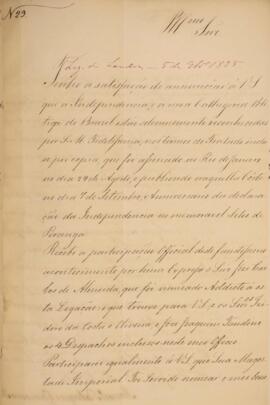 Nº 29
Illmo Snr
Leg. de Londres — 5 de Nbro 1825
Tenho a satisfação de annunciar a V.S.
que a Independencia, e a nova Cathegoria Poli-
tica do Brazil estão solemnemente reconhecidas
por S. M. Fidelissima, nos termos do Tratado
por copia, que foi assignado no Rio de Janeiro
no dia 29 de Agosto, e publicado naquella Corte
no dia 7 de Setembro, Anniversario da declara-
ção da Independencia no memoravel Sitio do
Piranga.
Recebi a participação Official deste fausto
acontecimento por hum Expresso o Snr José Car-
los de Almeida, que foi nomeado Addido a es-
ta Legação; e que trouxe para V.S. e os Snrs
da Costa e Oliveira, e
os 4 Despachos inclusos neste meu Officio.
Participarei igualmente a V.S. que Sua Mages-
tade Imperial Foi Servido nomear